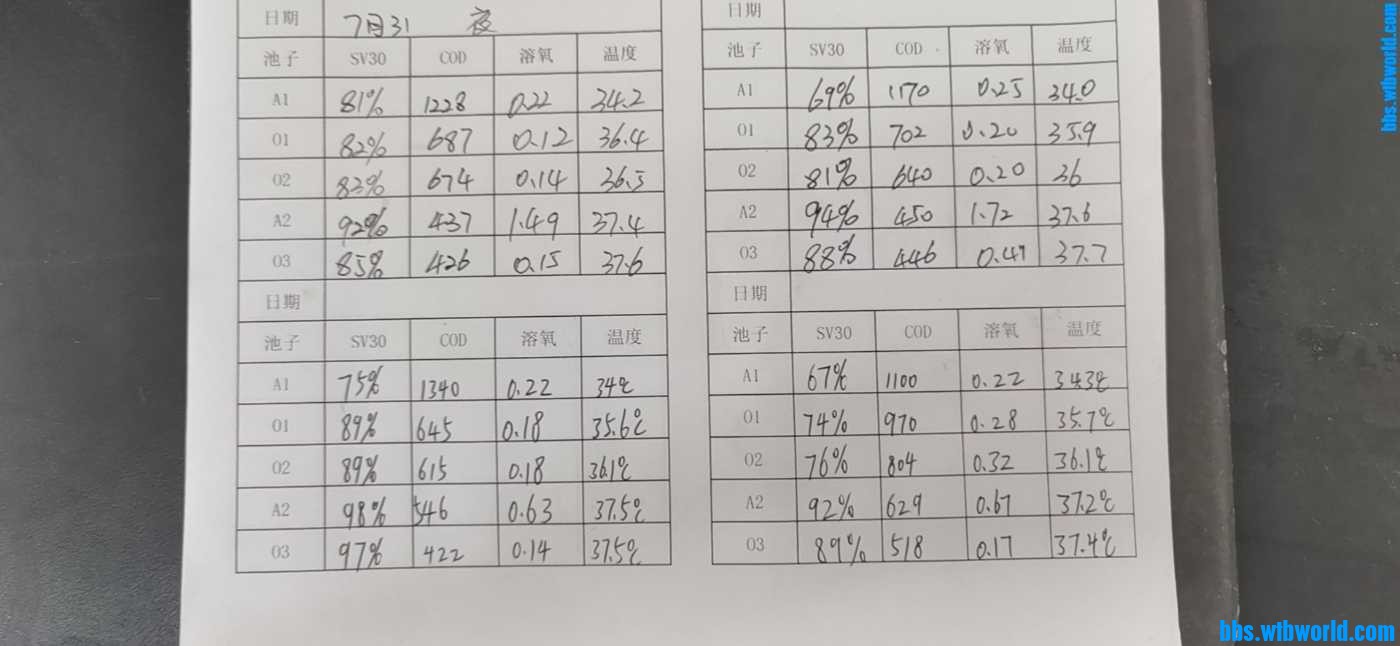 日期 7月31 夜
池子 SV30 COD 溶氧 温度
A1 81% 1228 0.22 34.2
O1 82% 687 0.12 36.4
O2 83% 674 0.14 36.5
A2 92% 437 1.49 37.4
O3 85% 426 0.15 37.6
日期
池子 SV30 COD 溶氧 温度
A1 75% 1340 0.22 34℃
O1 89% 645 0.18 35.6℃
O2 89% 615 0.18 36.1℃
A2 98% 546 0.63 37.5℃
O3 97% 422 0.14 37.5℃
日期
池子 SV30 COD 溶氧 温度
A1 69% 1170 0.25 34.0
O1 83% 702 0.20 35.9
O2 81% 640 0.20 36
A2 94% 450 1.72 37.6
O3 88% 446 37.7
日期
池子 SV30 COD 溶氧 温度
A1 67% 1100 0.22 34.3℃
O1 74% 970 0.28 35.7℃
O2 76% 804 0.32 36.1℃
A2 92% 629 0.67 37.2℃
O3 89% 518 0.17 37.4℃
bbs.wibworld.com
bbs.wibworld.com